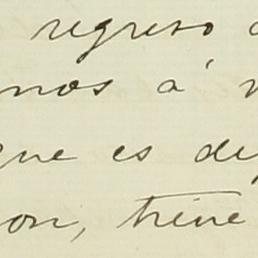 regreso
nos á
que es de
on, tiene